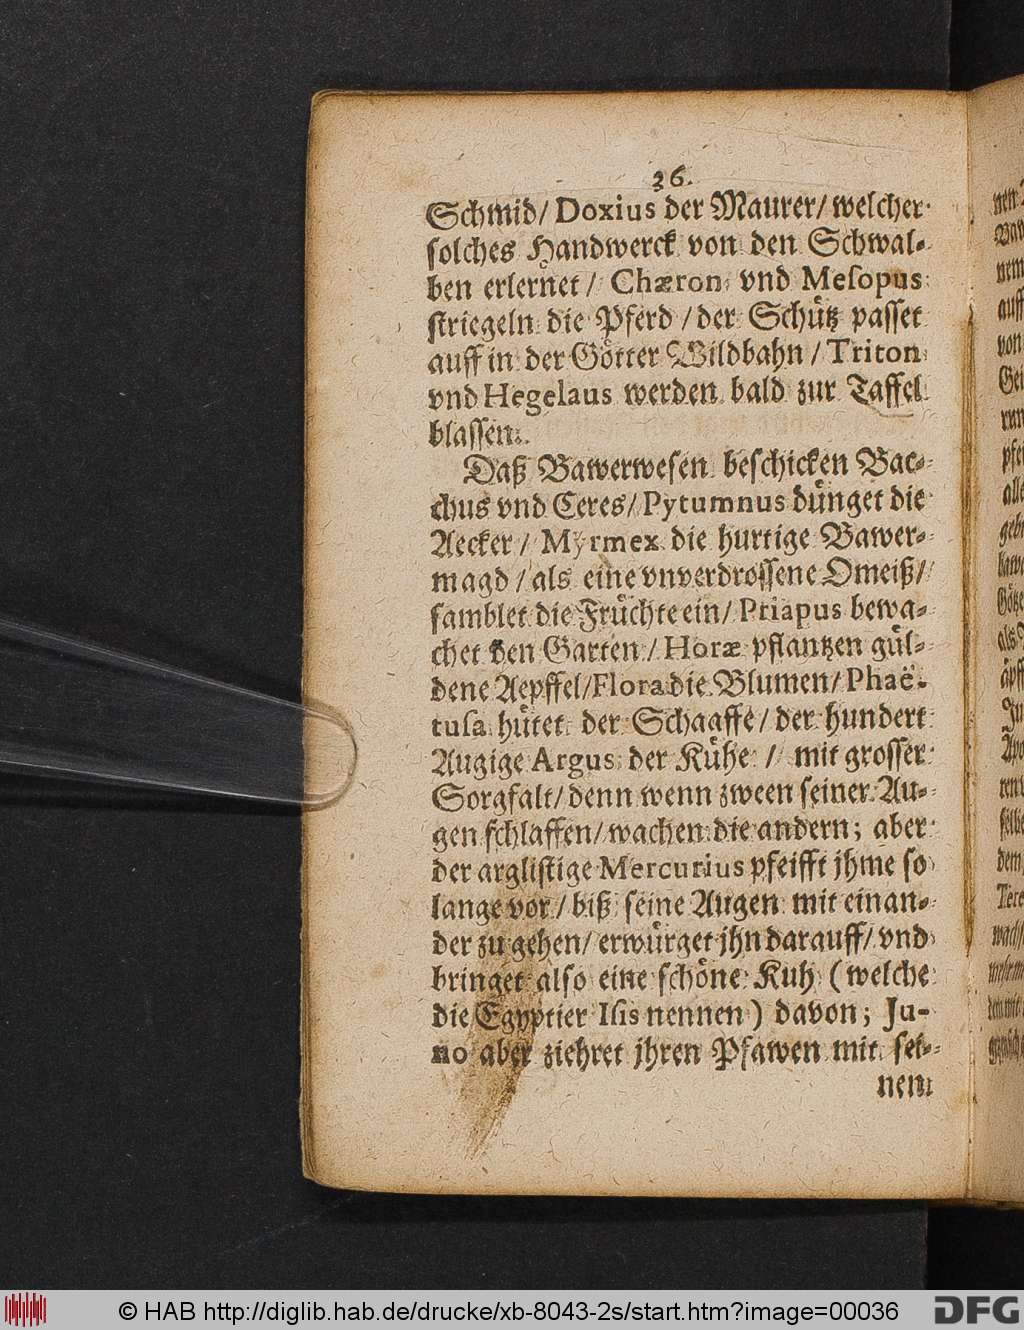 36.
Schmid/ Doxius der Maurer/ welcher
solches Handwerck von den Schwal-
ben erlernet/ Chæron vnd Meſopus
striegeln die Pferd/ der Schütz passet
auff in der Götter Wildbahn/ Triton
vnd Hegelaus werden bald zur Taffel
blassen.
Daß Bawerwesen beschicken Bac-
chus vnd Ceres/ Pytumnus dünget die
Aecker/ Myrmex die hurtige Bawer-
magd/ als eine vnverdrossene Omeiß/
samblet die Früchte ein/ Priapus bewa-
chet den Garten/ Horæ pflantzen gül-
dene Aepffel/ Flora die Blumen/ Phaë-
tuſa hütet der Schaaffe/ der hundert
Augige Argus der Kühe/ mit grosser
Sorgfalt/ denn wenn zween seiner Au-
gen schlaffen/ wachen die andern; aber
der arglistige Mercurius pfeifft jhme so
lange vor/ biß seine Augen mit einan-
der zu gehen/ erwürget jhn darauff/ vnd
bringet also eine schöne Kuh (welche
die Egyptier Iſis nennen) davon; Ju-
no aber ziehret jhren Pfawen mit sei-
nem
© HAB http://diglib.hab.de/drucke/xb-8043-2s/start.htm?image=00036
DFG